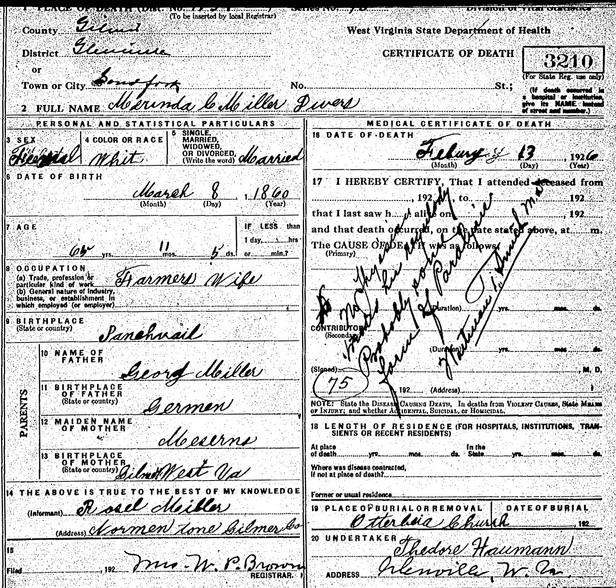 (To be inserted by local Registrar)
County Gilmer
District Glenville
or
Town or City Sand fork
No. St.;
2 FULL NAME Merinda C Miller Divers
West Virginia State Department of Health
CERTIFICATE OF DEATH
3210
(For State Reg. use only)
(If death occurred in
a hospital or institution,
give its NAME instead
of street and number.)
PERSONAL AND STATISTICAL PARTICULARS
3 SEX
4 COLOR OR RACE
Whit
5 SINGLE,
MARRIED,
WIDOWED,
OR DIVORCED,
(Write the word) Married
6 DATE OF BIRTH
March 8, 1860
(Month) (Day) (Year)
7 AGE
65 yrs. 11 mos. 5 ds.
IF LESS than
1 day, hrs.
8 OCCUPATION
(a) Trade, profession or
particular kind of work
(b) General nature of industry,
business, or establishment in
which employed (or employer)
Farmers Wife
9 BIRTHPLACE
(State or country)
PARENTS
10 NAME OF
FATHER
Georg Miller
11 BIRTHPLACE
OF FATHER
(State or country)
Germen
12 MAIDEN NAME
OF MOTHER
Meserns
13 BIRTHPLACE
OF MOTHER
(State or country)
Gilmer West Va
14 THE ABOVE IS TRUE TO THE BEST OF MY KNOWLEDGE
(Informant) Rosel Miller
(Address) Normen tone Gilmer Co
15
Filed , 192 Mrs. W. P. Brown
REGISTRAR.
MEDICAL CERTIFICATE OF DEATH
16 DATE OF DEATH
13 1926
(Month) (Day) (Year)
17 I HEREBY CERTIFY, That I attended deceased from
, 192 , to , 192
that I last saw h alive on , 192
and that death occurred, on the date stated above, at m.
The CAUSE OF DEATH was as follows:
(Primary)
No Physician
Probably some
form of Paralysis
(Duration) yrs. mos. ds.
CONTRIBUTORY
(Secondary)
(Duration) yrs. mos. ds.
(Signed) , M. D.
75
, 192 (Address)
NOTE: State the DISEASE CAUSING DEATH, In deaths from VIOLENT CAUSES, State MEANS
OF INJURY; and whether ACCIDENTAL, SUICIDAL, or HOMICIDAL.
18 LENGTH OF RESIDENCE (FOR HOSPITALS, INSTITUTIONS, TRAN-
SIENTS OR RECENT RESIDENTS)
At place
of death yrs. mos. ds.
In the
State yrs. mos. ds.
Where was disease contracted,
if not at place of death?
Former or usual residence
19 PLACE OF BURIAL OR REMOVAL
DATE OF BURIAL
Otterbeia Church , 192
20 UNDERTAKER
Thedore Haumann
ADDRESS Glenville, W. Va